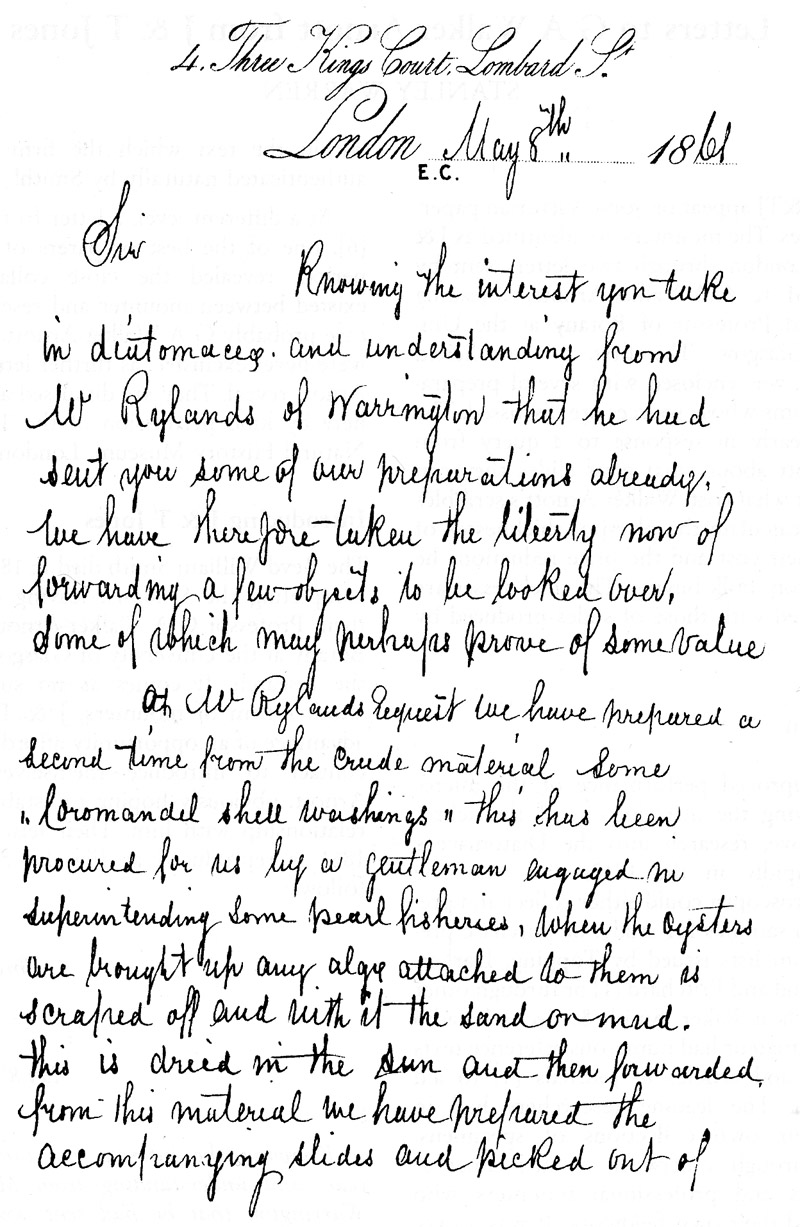 4. Three Kings Court. Lombard St
London May 8th 1861
E.C.
Sir
Knowing the interest you take
in diatomaceæ. and understanding from
Mr Rylands of Warrington that he had
sent you some of our preparations already.
We have therefore taken the liberty now of
forwarding a few objects to be looked over,
some of which may perhaps prove of some value
At Mr Rylands request we have prepared a
second time from the crude material some
„ Coromandel shell washings " this has been
procured for us by a gentleman engaged in
superintending some pearl fisheries, when the oysters
are brought up any algæ attached to them is
scraped off and with it the sand or mud.
this is dried in the sun and then forwarded,
from this material we have prepared the
accompanying slides and picked out of